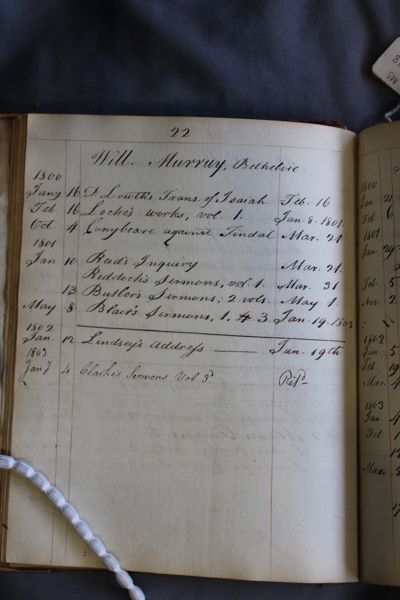 22
Will. Murray, Bethelvie
1800
Jany 16 D. Lowth's Trans. of Isaiah Feb. 16
Feb. 16 Locke's works, vol 1. Jan. 8. 1801.
Oct. 4 Conybeare against Tindal Mar. 21
1801
Jan 10 Reid's Inquiry Mar. 21.
Reddich's Sermons, vol 1. Mar. 31
13 Butler's Sermons, 2 vols. May 1.
May 8 Blair's Sermons, 1. & 3. Jan. 19. 1802
1802
Jan. 12 Lindsey's Address Jan. 19th
1803
Jany 4 Clarke's Sermons Vol 3d Retd